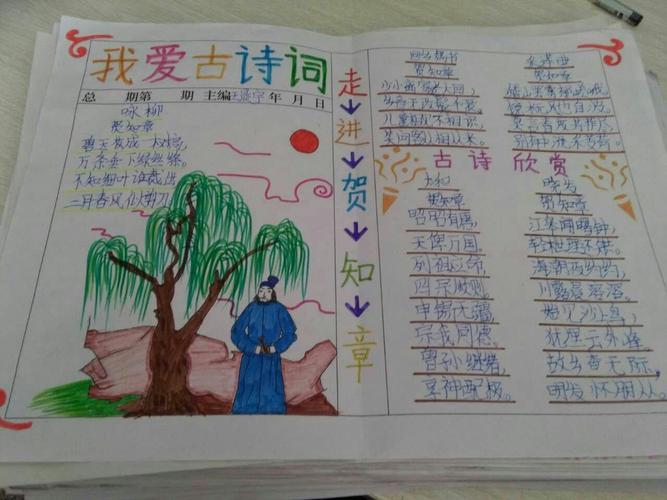 我爱古诗词
总 期第 期 主编 年 月 日
咏柳
贺知章
碧玉妆成一树高,
万条垂下绿丝绦。
不知细叶谁裁出,
二月春风似剪刀。
走进贺知章
回乡偶书
贺知章
少小离家老大回,
乡音
儿童相见不相识,
笑问客从何处来。
采莲曲
贺知章
古诗欣赏
太和
贺知章
昭昭有唐,
天俾万国。
列祖应命,
四宗顺则。
申锡无疆,
宗我同德。
曾孙继绪,
享神配极。
晓发
贺知章
江皋闻曙钟,
轻枻理还舼。
海潮夜约约,
川露晨溶溶。
始见沙上鸟,
犹埋云外峰。
故乡杳无际,
明发怀朋从。